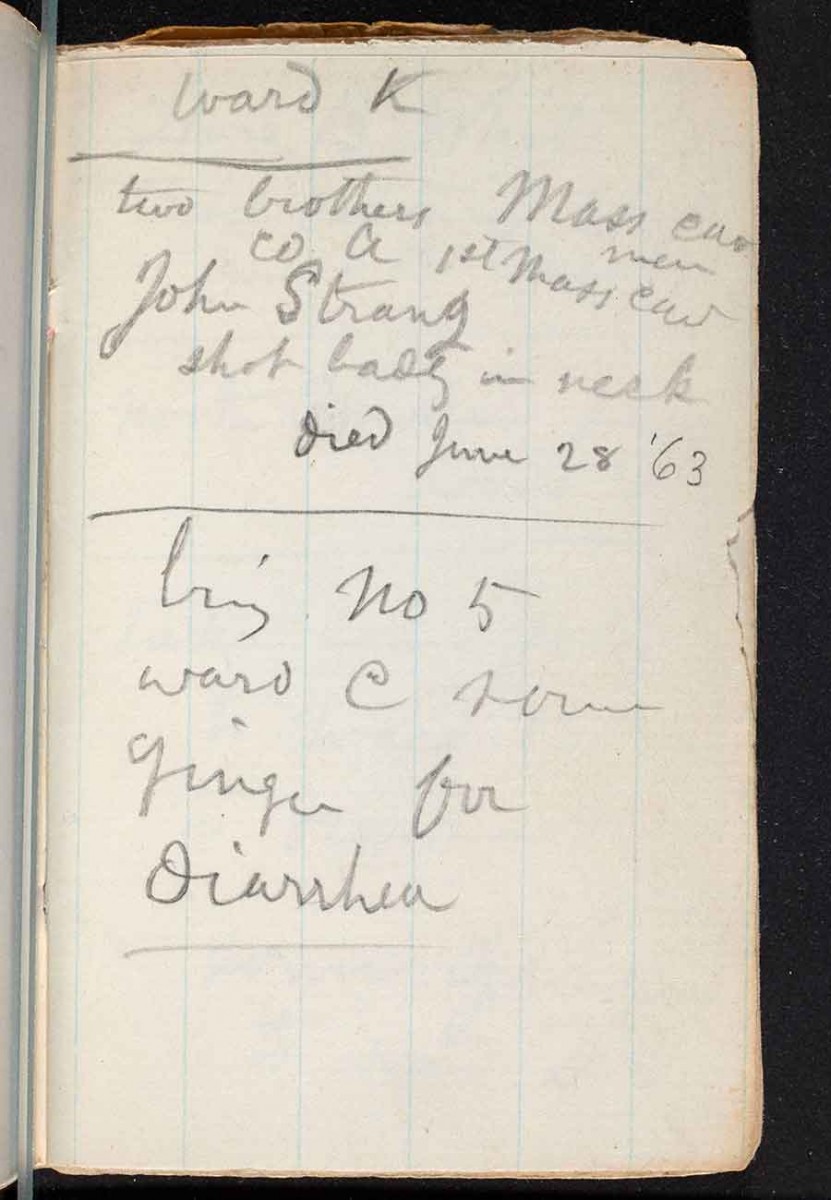 ward K
two brothers Mass cav
men
co A 1st Mass cav
John Strang
shot badly in neck
died June 28 '63
bring No 5
ward C some
ginger for
Diarrhea